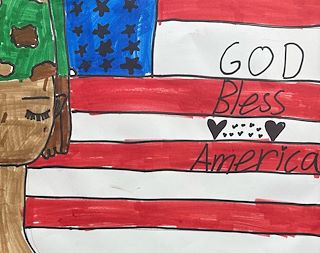 GOD
Bless
America